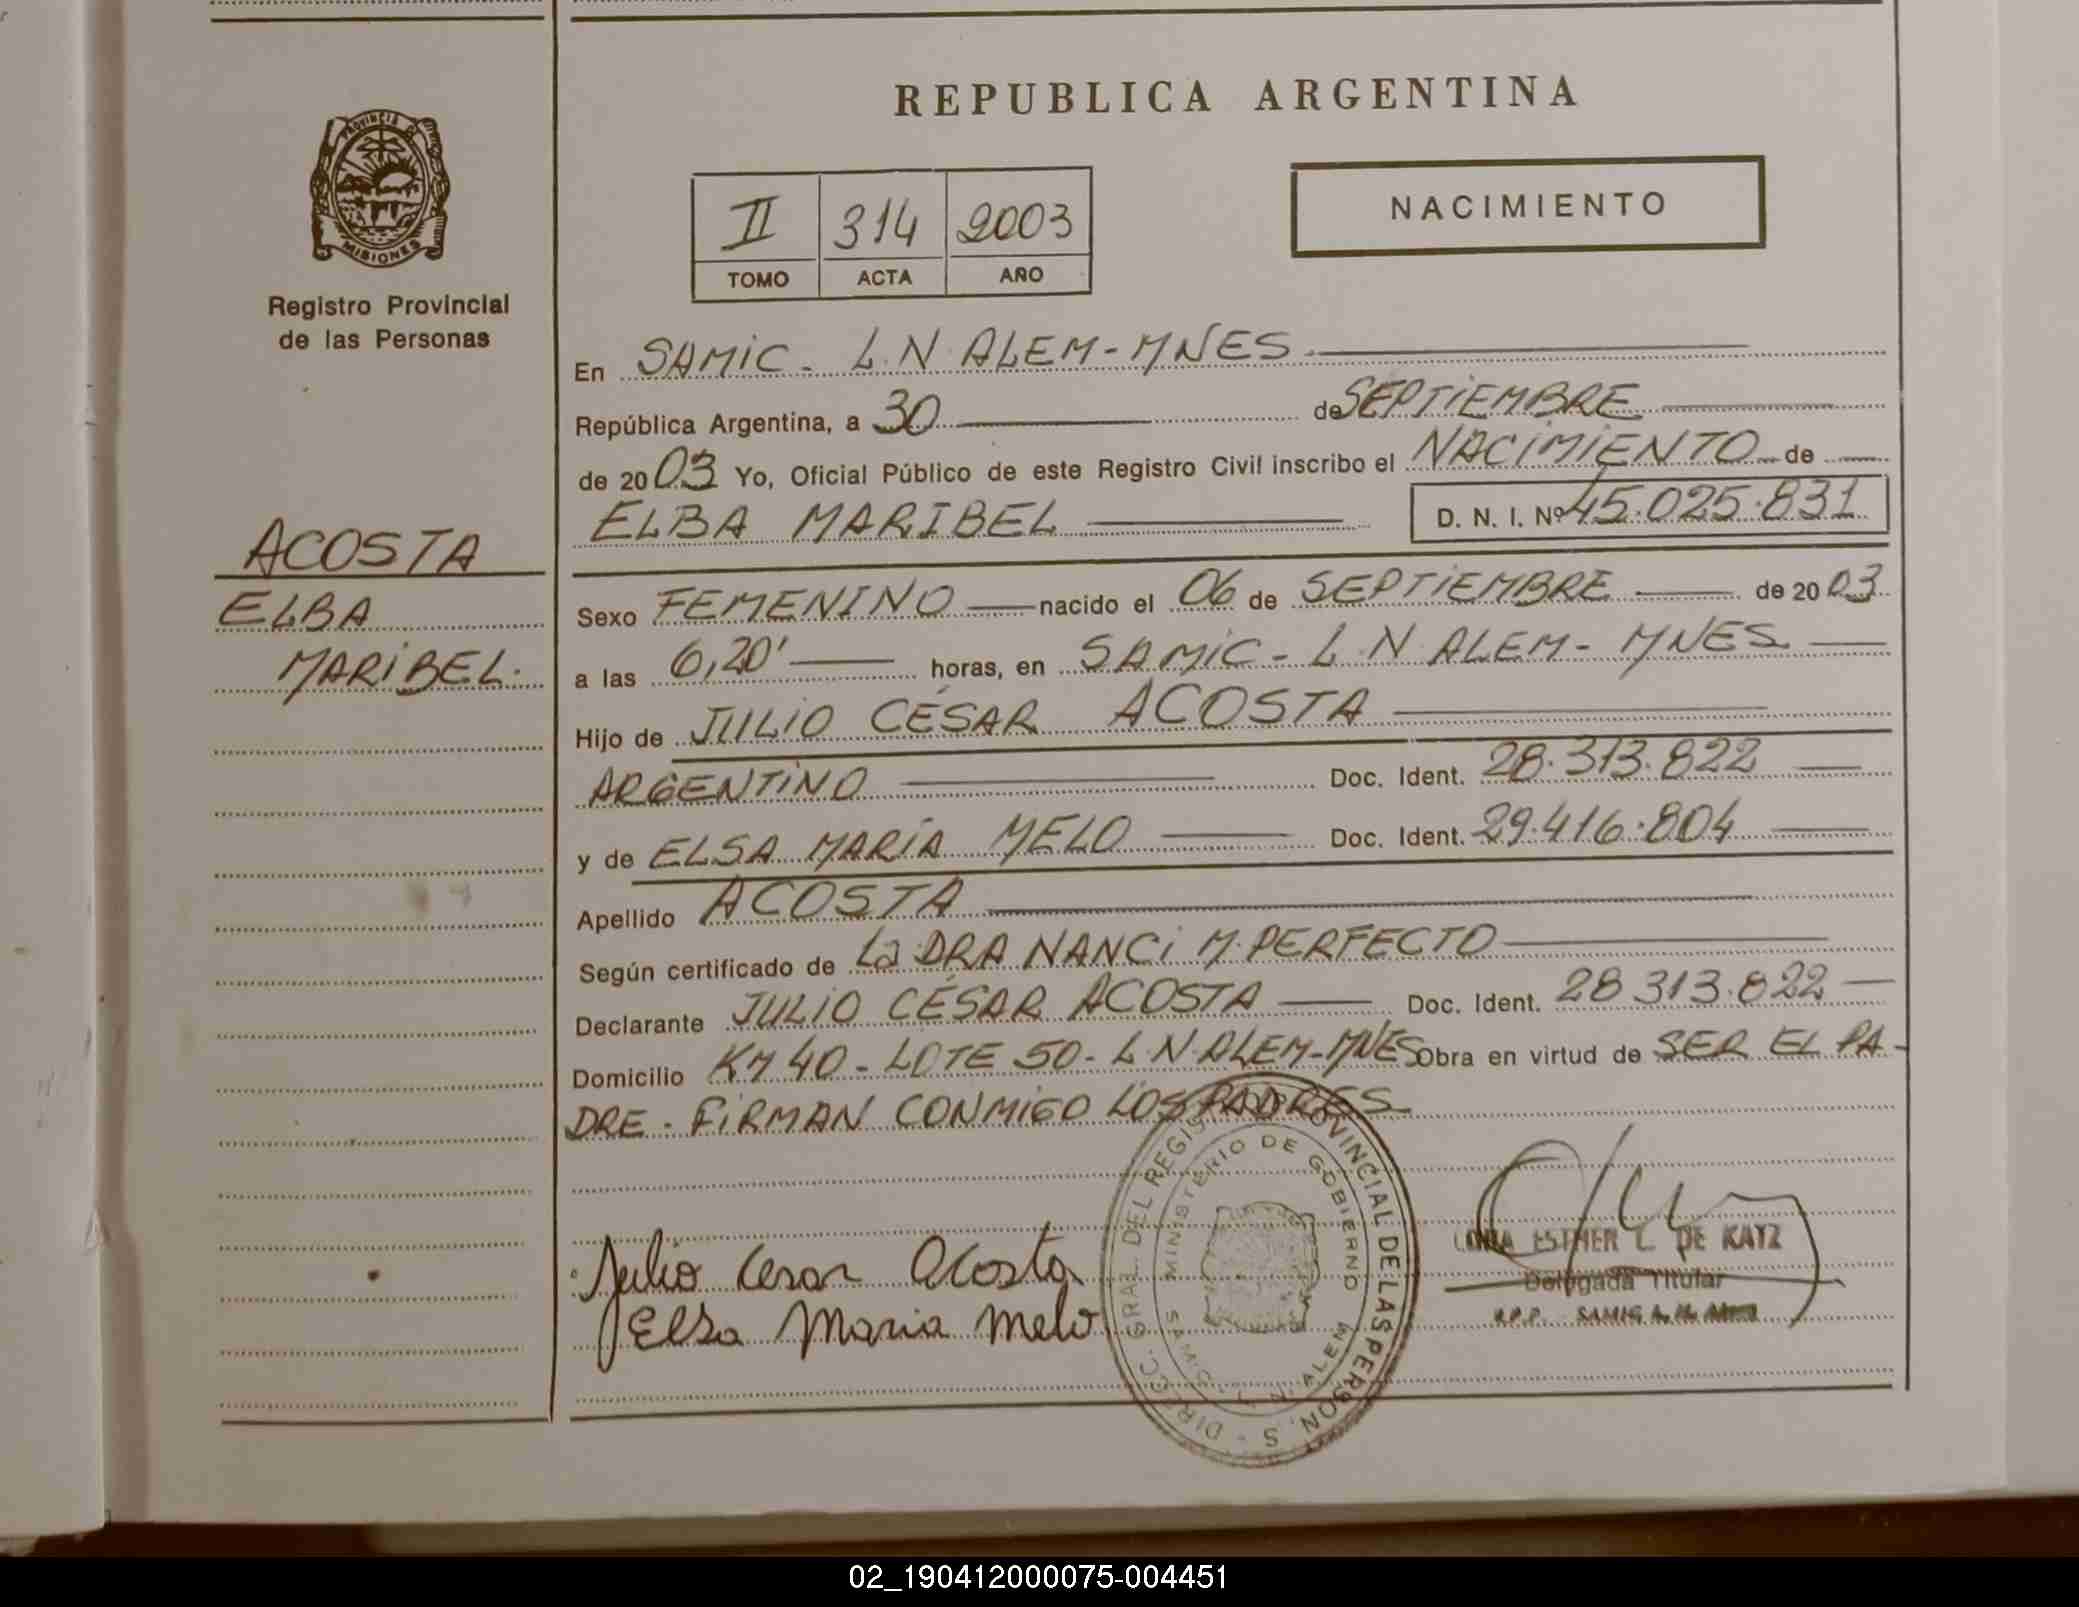 REPUBLICA ARGENTINA
PROVINCIA DE
MISIONES
Registro Provincial
de las Personas
II 314 2003
TOMO ACTA AÑO
NACIMIENTO
En SAMIC - L.N. ALEM - MNES.
República Argentina, a 30 de SEPTIEMBRE
de 2003 Yo, Oficial Público de este Registro Civil inscribo el NACIMIENTO de
ELBA MARIBEL D. N. I. Nº 45.025.831
ACOSTA
ELBA
MARIBEL.
Sexo FEMENINO nacido el 06 de SEPTIEMBRE de 2003
a las 6,20' horas, en SAMIC - L.N. ALEM - MNES
Hijo de JULIO CÉSAR ACOSTA
ARGENTINO Doc. Ident. 28.313.822
y de ELSA MARÍA MELO Doc. Ident. 29.416.804
Apellido ACOSTA
Según certificado de La DRA NANCI M. PERFECTO
Declarante JULIO CÉSAR ACOSTA Doc. Ident. 28 313.822
Domicilio KM 40 - LOTE 50 - L.N. ALEM - MNES Obra en virtud de SER EL PA-
DRE - FIRMAN CONMIGO LOS PADRES
Julio Cesar Acosta
Elsa Maria Melo
DIRECC. GRAL. DEL REGISTRO PROVINCIAL DE LAS PERSONAS
MINISTERIO DE GOBIERNO
SAMIC - L. N. ALEM
ESTHER L. DE KATZ
Delegada Titular
R.P.P. SAMIC L. N.
02_190412000075-004451